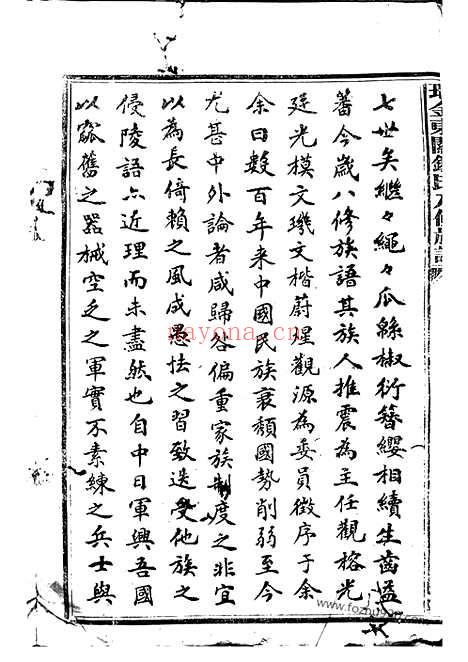 七世矣繼々繩々瓜緜椒衍簪纓相續生齒益
蕃今歲八修族譜其族人推震為主任觀榕光
廷光模文璣文楷蔚星觀源為委員徵序于余
余曰數百年来中國民族衰頹國勢削弱至今
尤甚中外論者咸歸咎偏重家族制度之非宜
以為長倚賴之風成愚怯之習致迭受他族之
侵陵語亦近理而未盡然也自中日軍興吾國
以窳舊之器械空乏之軍實不素練之兵士與
nayona.cn
www.fozhu920.com